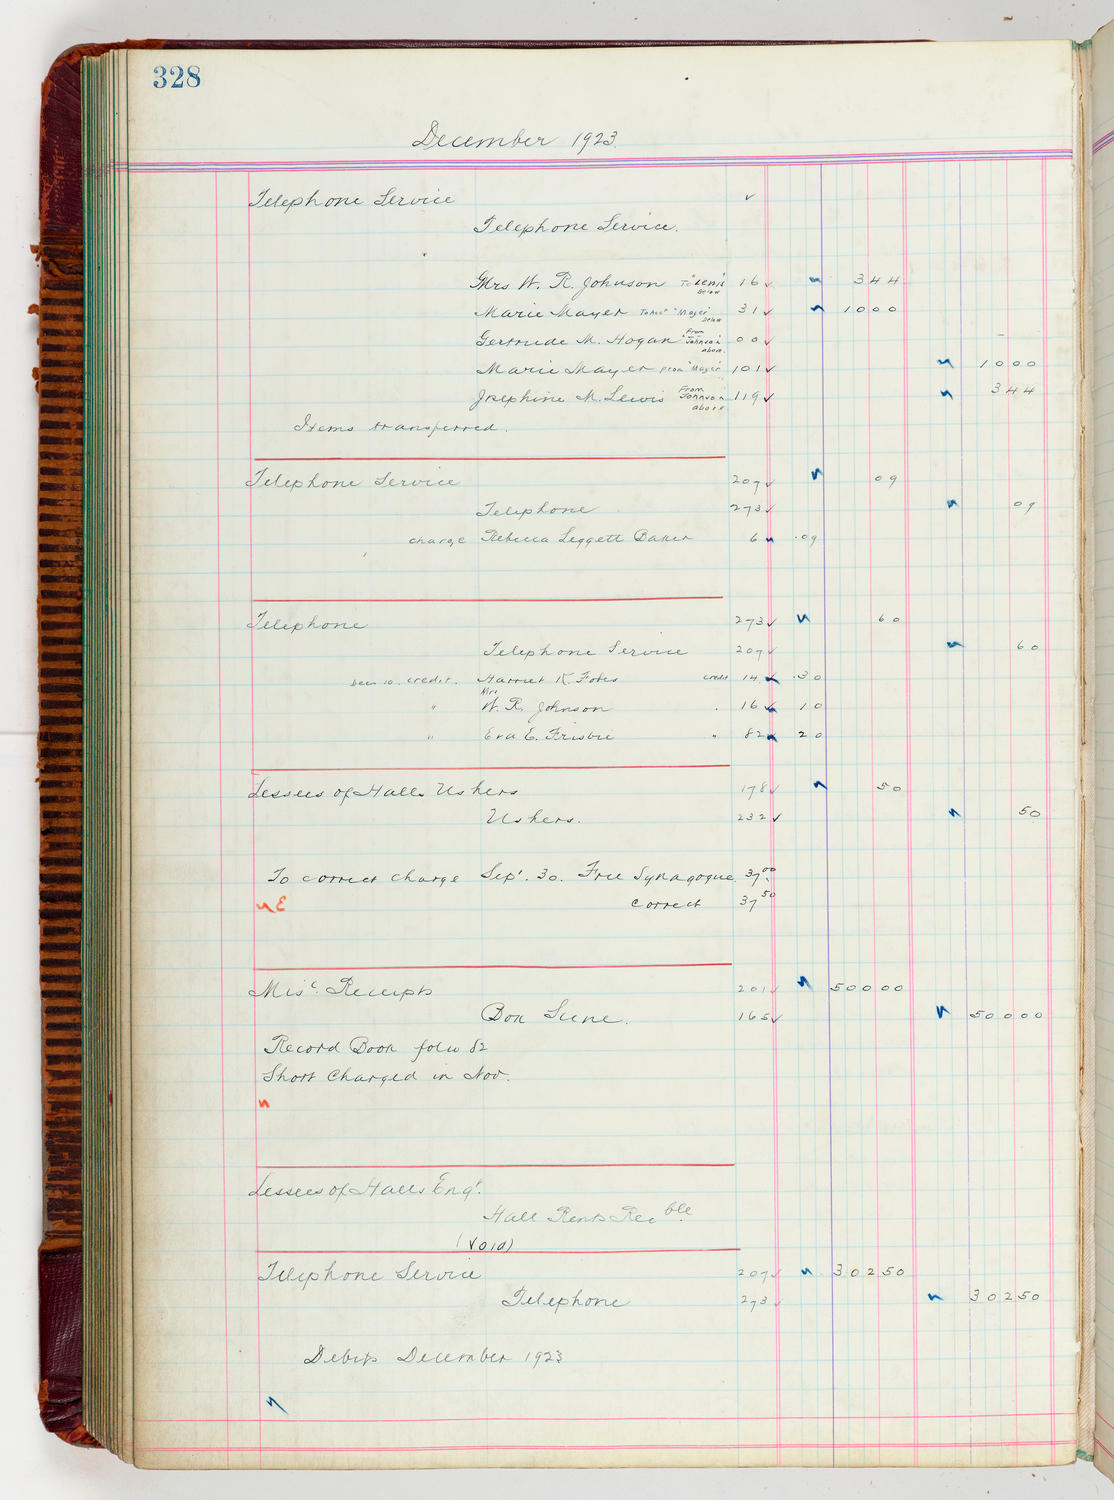 328
December 1923.
Telephone Service ✓
Telephone Service.
Mrs W. R. Johnson To "Lewis" below 16 ✓ 3 44
Marie Mayer "Mayer" below 31 ✓ 10 00
Gertrude M. Hogan From "Johnson" above. 00 ✓ –
Marie Mayer from "Mayer" 101 ✓ 10 00
Josephine M. Lewis From Johnson above 119 ✓ 3 44
Items transferred.
Telephone Service 207 ✓ 09
Telephone 273 ✓ 09
charge Rebecca Leggett Baker 6 .09
Telephone 273 ✓ 60
Telephone Service 207 ✓ 60
Dec. 10. credit. Harriet K. Fobes credit 14. .30
" Mrs W. R. Johnson . 16 10
" Eva E. Frisbie " 82 20
Lessees of Halls Ushers 178 ✓ 50
Ushers. 232 ✓ 50
To correct charge Sep't. 30. Free Synagogue. 37.00
E correct 37 50
Misc. Receipts 201 ✓ 500 00
Bon Lune. 165 ✓ 500 00
Record Book folio 82
Short Charged in Nov.
Lessees of Halls Engr.
Hall Rents Rec ble.
(Void)
Telephone Service 207 ✓ 302 50
Telephone 273 ✓ 302 50
Debits December 1923